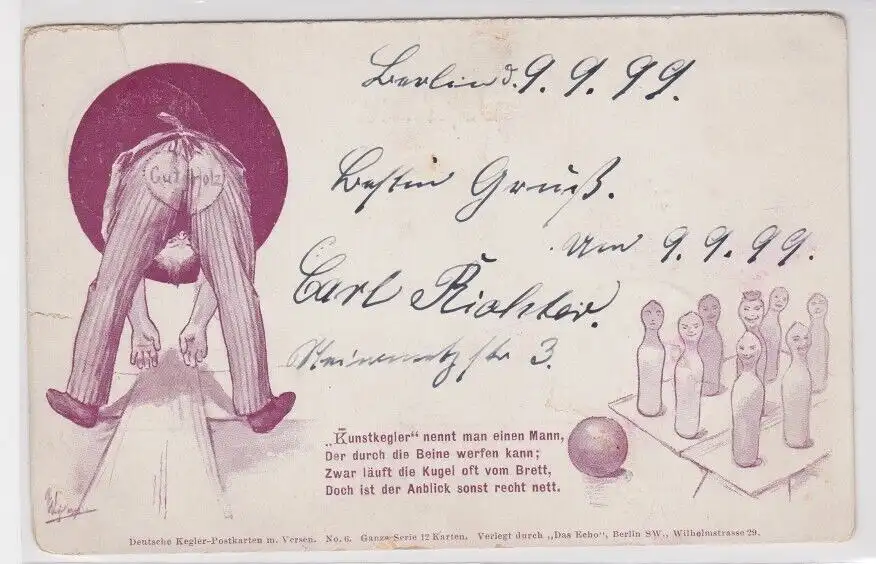 Berlin d. 9. 9. 99.
Besten Gruß.
Um 9. 9. 99.
Carl Richter.
Steinmetzstr 3.
Gut Holz
„Kunstkegler" nennt man einen Mann,
Der durch die Beine werfen kann;
Zwar läuft die Kugel oft vom Brett,
Doch ist der Anblick sonst recht nett.
Deutsche Kegler-Postkarten m. Versen. No. 6. Ganze Serie 12 Karten. Verlegt durch „Das Echo", Berlin SW., Wilhelmstrasse 29.